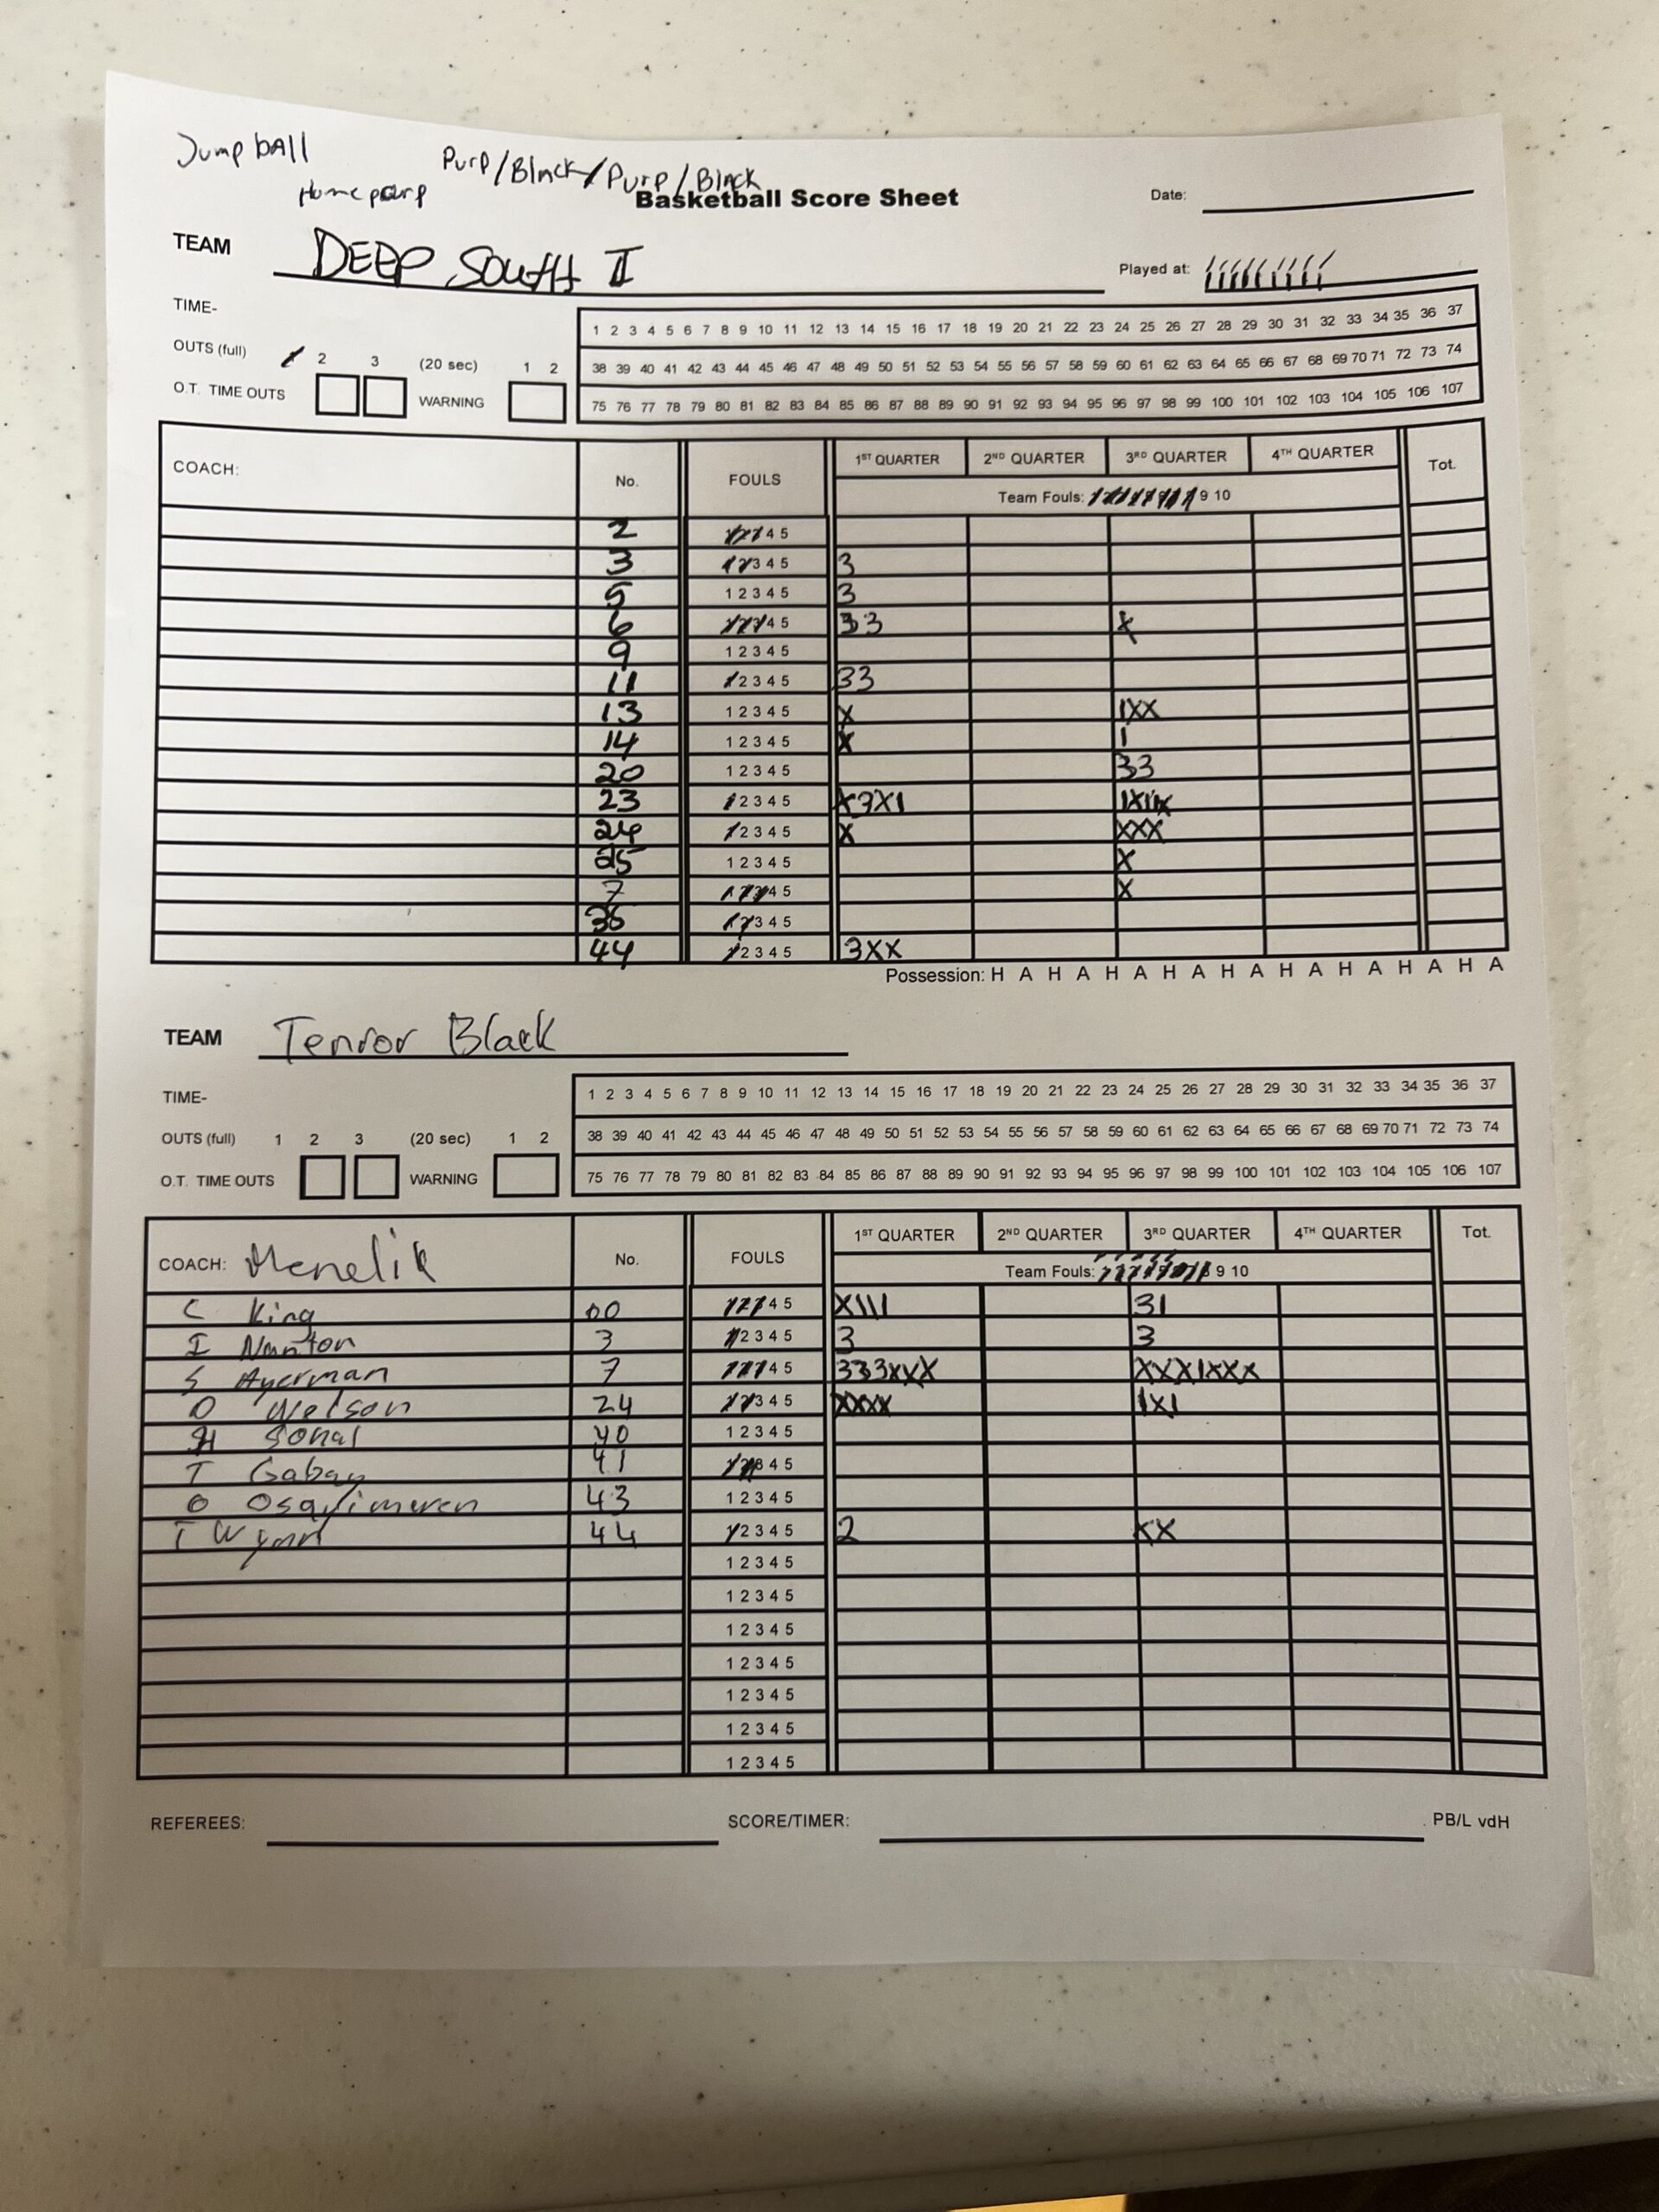 Jump ball
Purp/Black/Purp/Black
Home purp
Basketball Score Sheet
Date:
TEAM DEEP SOUTH II
Played at:
TIME-
OUTS (full) 1 2 3 (20 sec) 1 2
O.T. TIME OUTS WARNING
1 2 3 4 5 6 7 8 9 10 11 12 13 14 15 16 17 18 19 20 21 22 23 24 25 26 27 28 29 30 31 32 33 34 35 36 37
38 39 40 41 42 43 44 45 46 47 48 49 50 51 52 53 54 55 56 57 58 59 60 61 62 63 64 65 66 67 68 69 70 71 72 73 74
75 76 77 78 79 80 81 82 83 84 85 86 87 88 89 90 91 92 93 94 95 96 97 98 99 100 101 102 103 104 105 106 107
COACH: No. FOULS 1ST QUARTER 2ND QUARTER 3RD QUARTER 4TH QUARTER Tot.
Team Fouls: 9 10
2 1 2 3 4 5
3 1 2 3 4 5 3
5 1 2 3 4 5 3
6 1 2 3 4 5 33 X
9 1 2 3 4 5
11 1 2 3 4 5 33
13 1 2 3 4 5 X 1XX
14 1 2 3 4 5 X 1
20 1 2 3 4 5 33
23 1 2 3 4 5
24 1 2 3 4 5 X XXX
25 1 2 3 4 5 X
7 1 2 3 4 5 X
1 2 3 4 5
44 1 2 3 4 5 3XX
Possession: H A H A H A H A H A H A H A H A H A
TEAM Terror Black
TIME-
OUTS (full) 1 2 3 (20 sec) 1 2
O.T. TIME OUTS WARNING
1 2 3 4 5 6 7 8 9 10 11 12 13 14 15 16 17 18 19 20 21 22 23 24 25 26 27 28 29 30 31 32 33 34 35 36 37
38 39 40 41 42 43 44 45 46 47 48 49 50 51 52 53 54 55 56 57 58 59 60 61 62 63 64 65 66 67 68 69 70 71 72 73 74
75 76 77 78 79 80 81 82 83 84 85 86 87 88 89 90 91 92 93 94 95 96 97 98 99 100 101 102 103 104 105 106 107
COACH: Menelik No. FOULS 1ST QUARTER 2ND QUARTER 3RD QUARTER 4TH QUARTER Tot.
Team Fouls: 8 9 10
C King 00 1 2 3 4 5 X111 31
I Nanton 3 1 2 3 4 5 3 3
S Ayerman 7 1 2 3 4 5 333XXX XXX1XXX
O Welson 24 1 2 3 4 5 XXXX 1X1
H 40 1 2 3 4 5
T Gabay 41 1 2 3 4 5
O 43 1 2 3 4 5
T Wynn 44 1 2 3 4 5 2 XX
1 2 3 4 5
1 2 3 4 5
1 2 3 4 5
1 2 3 4 5
1 2 3 4 5
1 2 3 4 5
1 2 3 4 5
REFEREES: SCORE/TIMER: PB/L vdH